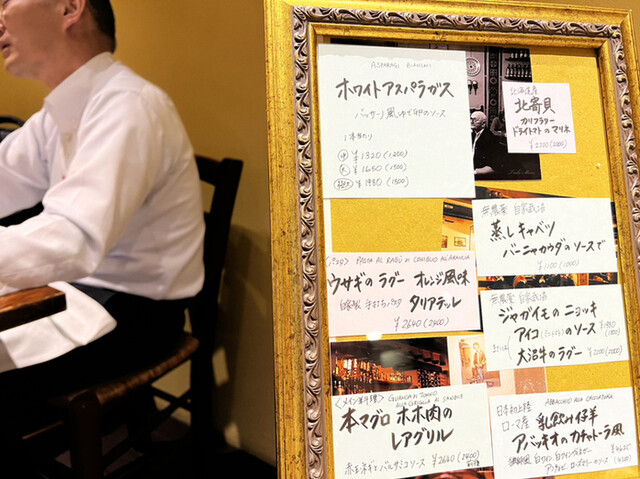 ASPARAGI BIANCHI
ホワイトアスパラガス
バッサーノ風 ゆで卵のソース
1本当たり
中 ¥1320(1200)
大 ¥1650(1500)
¥1980(1800)
北海道産
北寄貝
カリフラワー
ドライトマトのマリネ
¥2200(2000)
無農薬 自家栽培
蒸しキャベツ
バーニャカウダのソースで
PASTA AL RAGÙ DI CONIGLIO ALL'ARANCIA
ウサギのラグー オレンジ風味
自家製 手打ちパスタ タリアテッレ
¥2640(2400)
無農薬 自家栽培
ジャガイモのニョッキ
アイコ(ミニトマト)のソース
または 大沼牛のラグー ¥2200(2000)
<メイン料理> GUANCIA DI TONNO ALLA GRIGLIA AL SANGUE
本マグロ ホホ肉の
レアグリル
赤玉ネギとバルサミコソース ¥2640(2400)
日本初上陸 ABBACCHIO ALLA CACCIATORA
ローマ産 乳飲み仔羊
アバッキオのカチャトーラ風
白ワイン、白ワインビネガー
アンチョビ、ローズマリーのソース